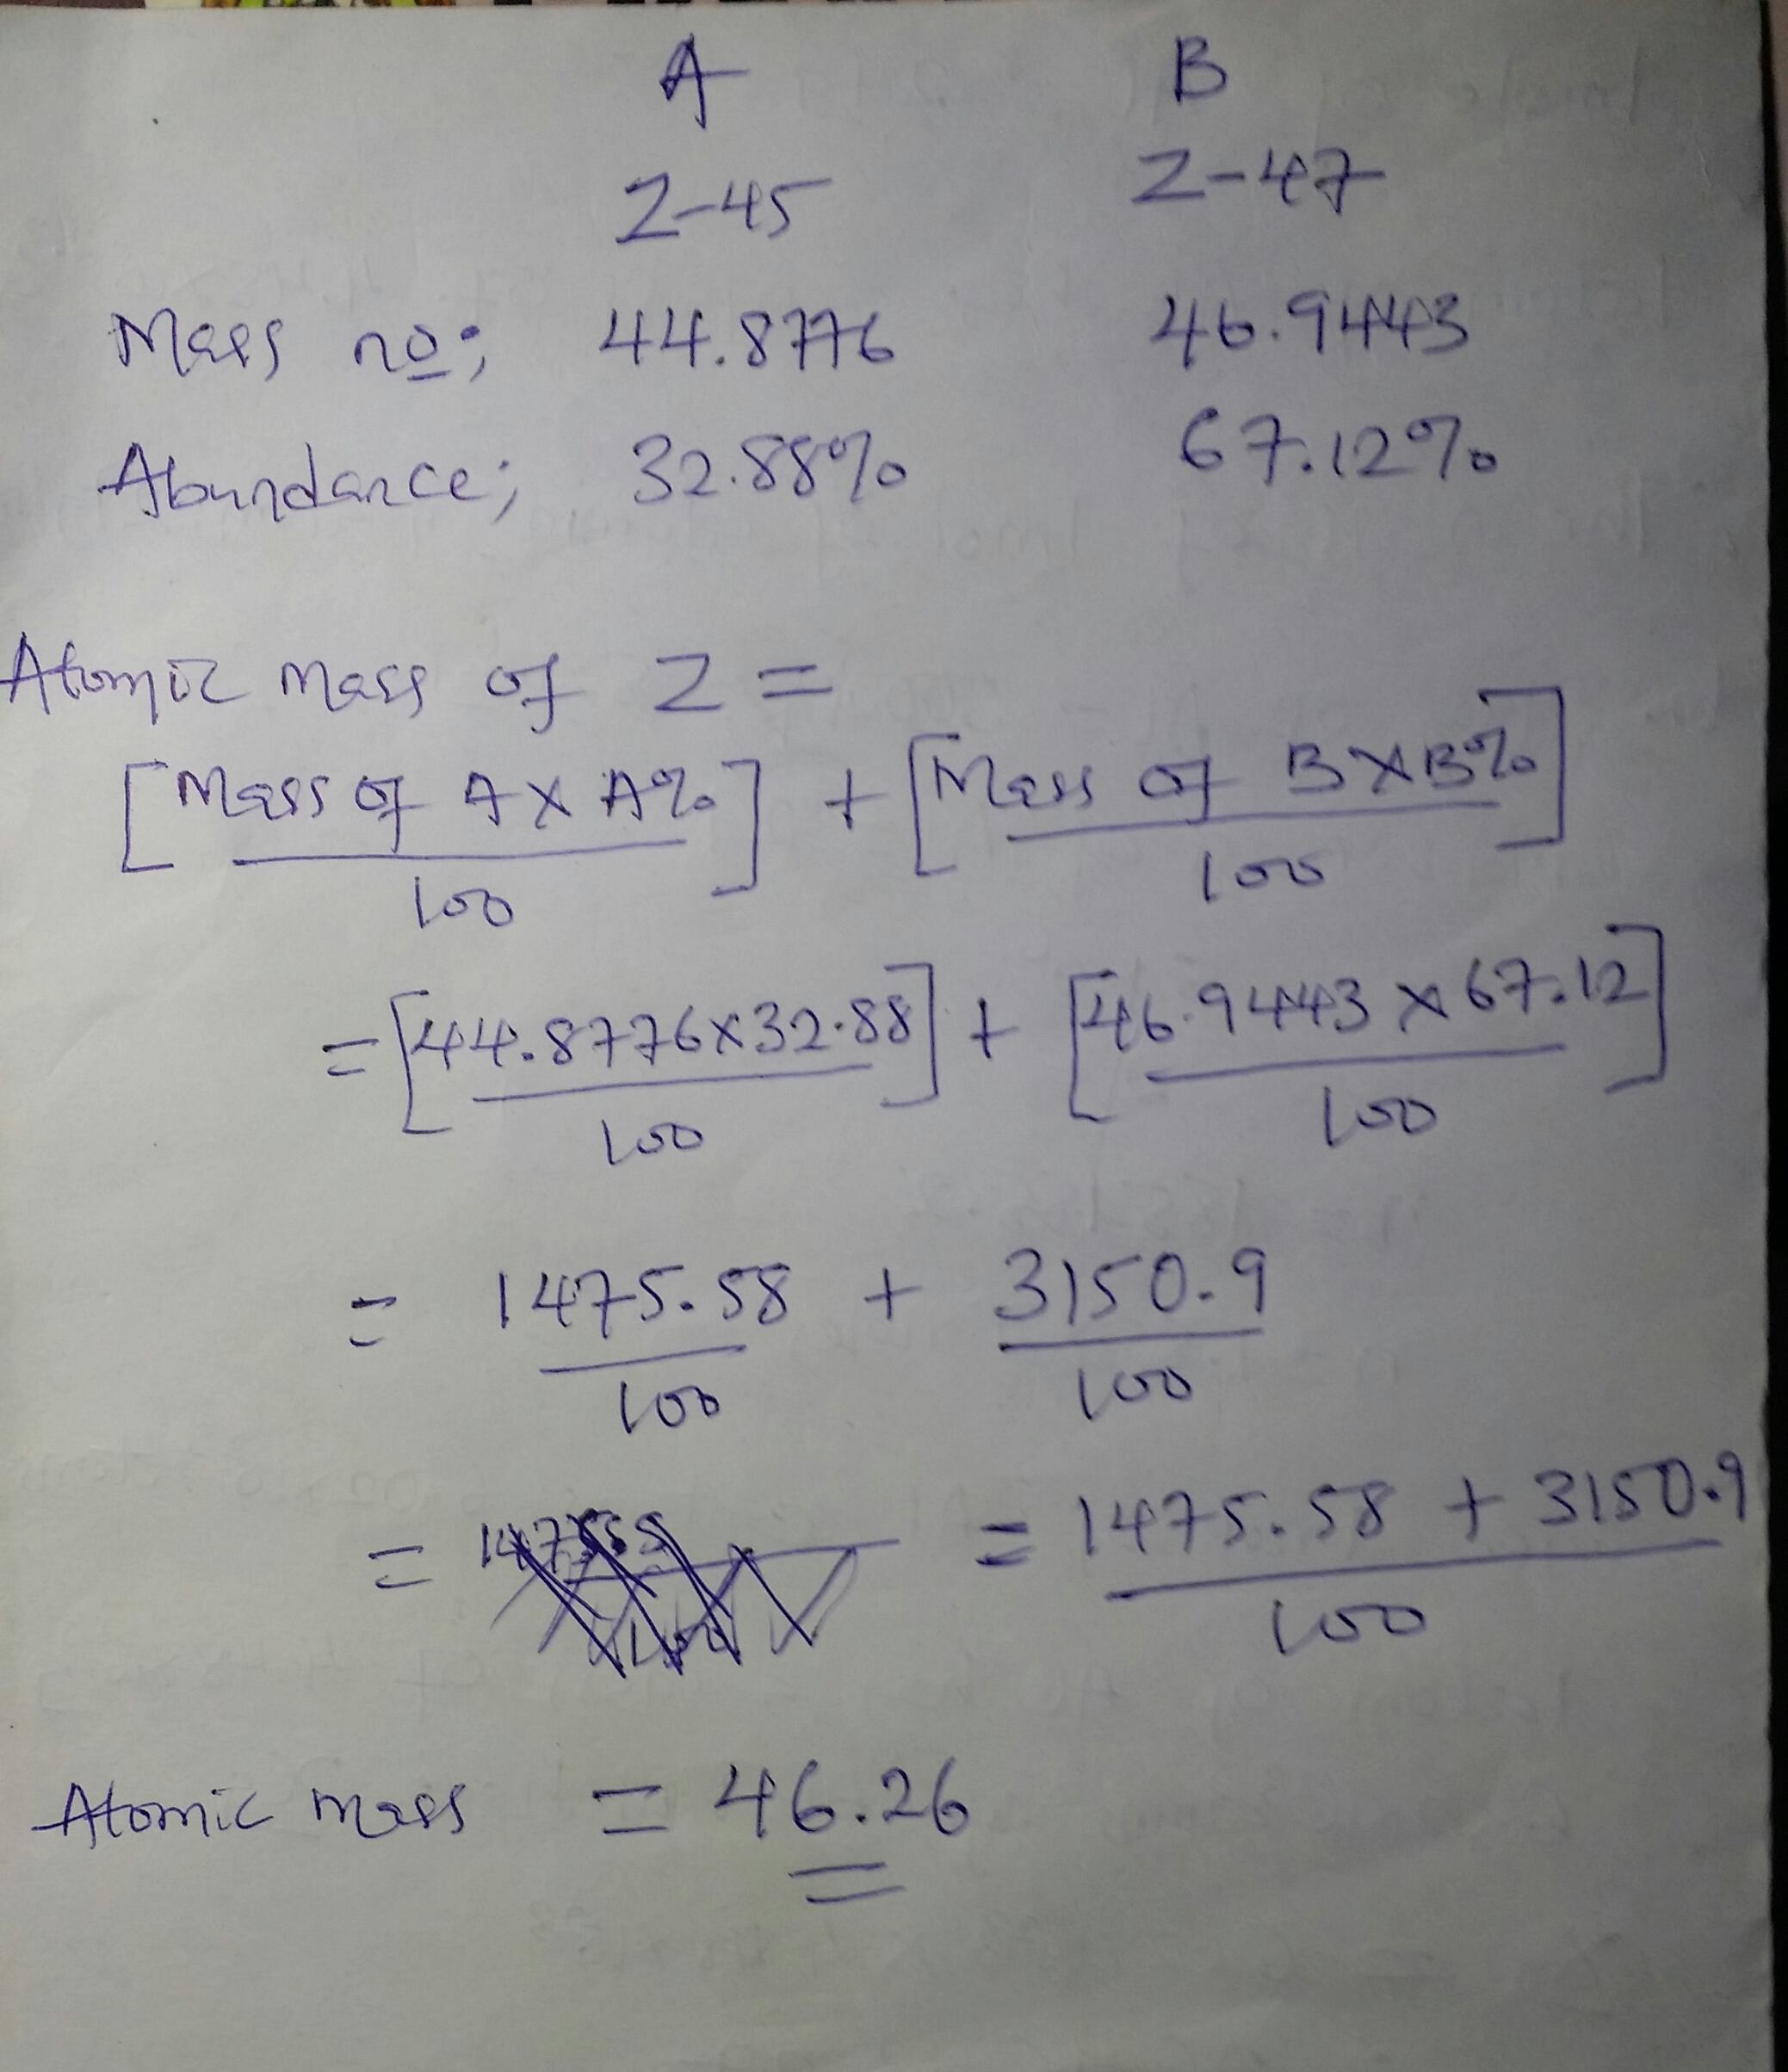 A B
Z-45 Z-47
Mass no; 44.8776 46.9443
Abundance; 32.88% 67.12%
Atomic mass of Z =
[Mass of A x A%/100] + [Mass of B x B%/100]
= [44.8776x32.88/100] + [46.9443 x 67.12/100]
= 1475.58/100 + 3150.9/100
= = 1475.58 + 3150.9/100
Atomic mass = 46.26